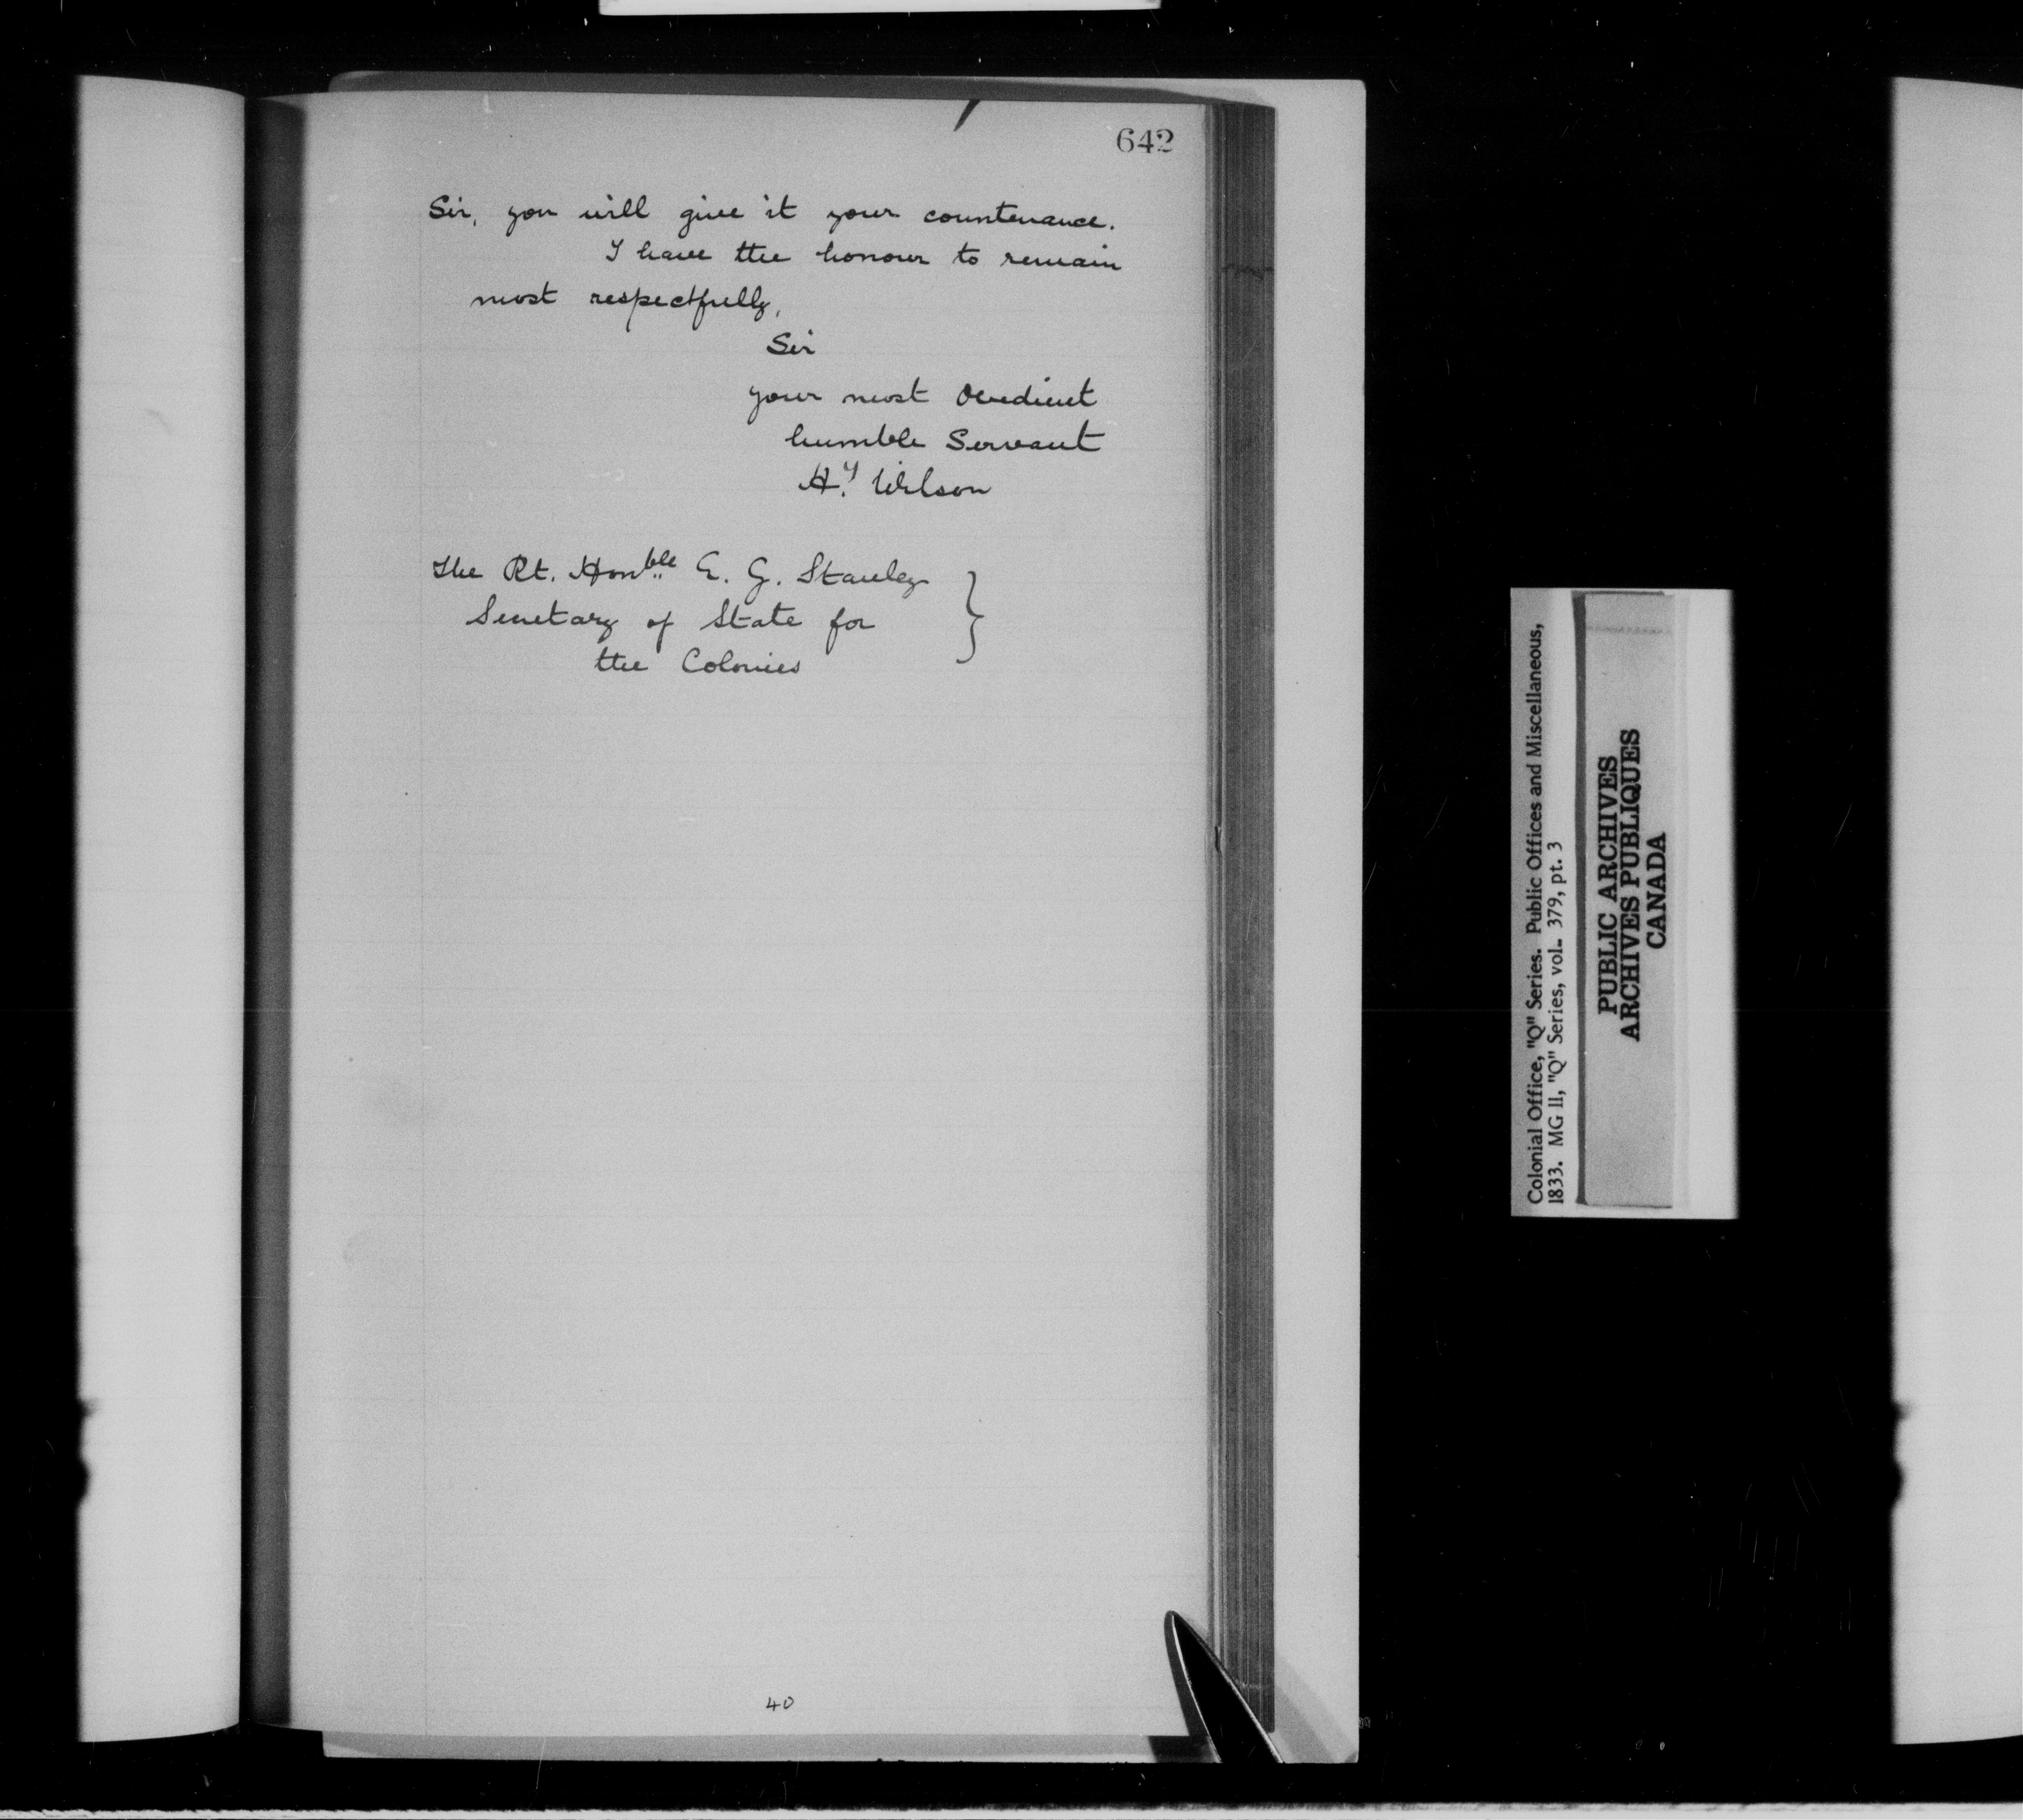 642
Sir, you will give it your countenance.
I have the honour to remain
most respectfully,
Sir
your most Obedient
humble Servant
H.y Wilson
The Rt. Honble E. G. Stanley
Secretary of State for
the Colonies
40
Colonial Office, "Q" Series. Public Offices and Miscellaneous,
1833. MG 11, "Q" Series, vol. 379, pt. 3
PUBLIC ARCHIVES
ARCHIVES PUBLIQUES
CANADA